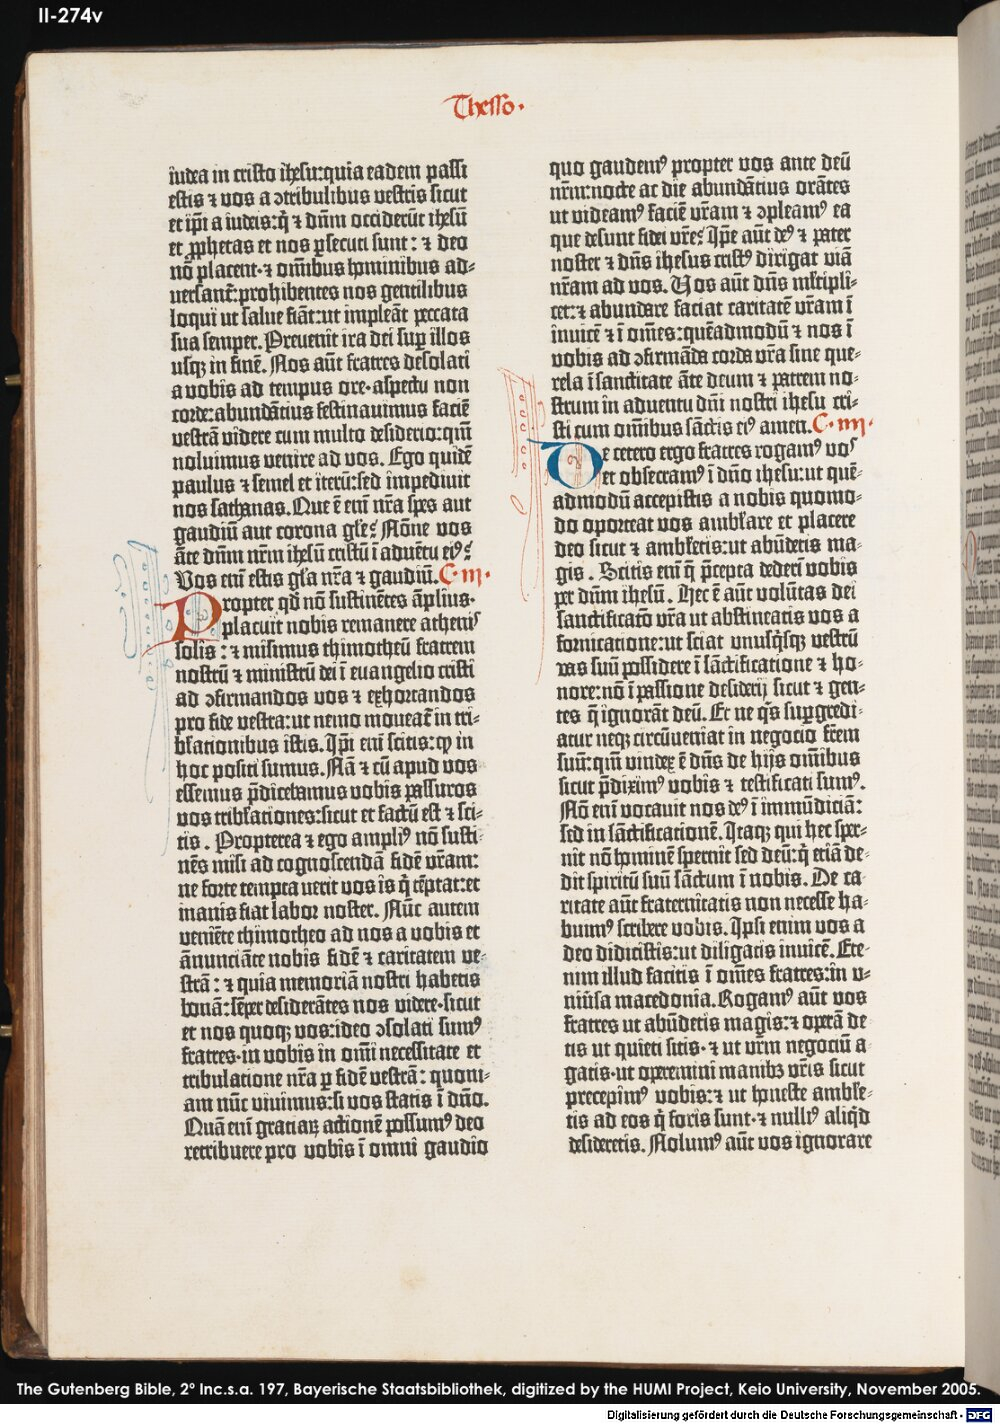 II-274v
Thesso.
iudea in cristo ihesu:quia eadem passi
estis ⁊ vos a ꝯtribulibus vestris sicut
et ip̄i a iudeis:q̇ ⁊ dūm occiderūt ihesū
et ꝓphetas et nos ꝑsecuti sunt: ⁊ deo
nō placent·⁊ om̄ibus hominibus ad-
versant̄:prohibentes nos gentilibus
loqui ut salue fiāt:ut impleāt peccata
sua semper. Prevenit ira dei suꝑ illos
usqꝫ in finē. Nos aūt fratres desolati
a vobis ad tempus ore·aspectu non
corde:abundātius festinavimus faciē
vestrā videre cum multo desiderio:qm̄
noluimus venire ad vos. Ego quidē
paulus ⁊ semel et iterū:sed impedivit
nos sathanas. Que ē eni nr̄a spes aut
gaudiū aut corona gl̄e? Nōne vos
āte dūm nr̄m ihesū cristū ī advētu eiꝰ?
Vos eni estis gl̄a nr̄a ⁊ gaudiū. C·III·
Propter qd̄ nō sustinētes āplius·
placuit nobis remanere athenis
solis: ⁊ misimus thimotheū fratrem
nostrū ⁊ ministrū dei ī euangelio cristi
ad ꝯfirmandos vos ⁊ exhortandos
pro fide vestra:ut nemo moveat̄ in tri-
bl̄ationibus istis. Ip̄i eni scitis:ꝙ in
hoc positi sumus. Nā ⁊ cū apud vos
essemus p̄dicebamus vobis passuros
vos tribl̄ationes:sicut et factū est ⁊ sci-
tis. Propterea ⁊ ego ampliꝰ nō susti-
nēs misi ad cognoscendā fidē vr̄am:
ne forte tempta verit vos is q̇ tēptat:et
inanis fiat labor noster. Nūc autem
veniēte thimotheo ad nos a vobis et
ānunciāte nobis fidē ⁊ caritatem ve-
strā: ⁊ quia memoriā nostri habetis
bonā:sēper desiderātes nos videre·sicut
et nos quoqꝫ vos:ideo ꝯsolati sumꝰ
fratres·in vobis in om̄i necessitate et
tribulatione nr̄a ꝑ fidē vestrā: quoni-
am nūc vivimus:si vos statis ī dn̄o.
Quā eni gratiaꝝ actionē possumꝰ deo
retribuere pro vobis ī omni gaudio
quo gaudemꝰ propter vos ante deū
nr̄m:nocte ac die abundātius orātes
ut videamꝰ faciē vr̄am ⁊ ꝯpleamꝰ ea
que desunt fidei vr̄e? Ip̄e aūt deꝰ ⁊ pater
noster ⁊ dn̄s ihesus cristꝰ dirigat viā
nr̄am ad vos. Vos aūt dn̄s ml̄tipli-
cet:⁊ abundare faciat caritatē vr̄am ī
invicē ⁊ ī om̄es:quēadmodū ⁊ nos ī
vobis ad ꝯfirmāda corda vr̄a sine que-
rela ī sanctitate āte deum ⁊ patrem no-
strum in adventu dn̄i nostri ihesu cri-
sti cum om̄ibus sāctis eiꝰ amen. C·IIII·
De cetero ergo fratres rogamꝰ vos
et obsecramꝰ ī dn̄o ihesu:ut quē-
admodū accepistis a nobis quomo-
do oporteat vos ambl̄are et placere
deo sicut ⁊ ambl̄etis:ut abūdetis ma-
gis. Scitis eni q̄ p̄cepta dederī vobis
per dūm ihesū. Hec ē aūt volūtas dei
sanctificatō vr̄a ut abstineatis vos a
fornicatione:ut sciat unusq̇sqꝫ vestrū
vas suū possidere ī sāctificatione ⁊ ho-
nore:nō ī passione desiderij sicut ⁊ gen-
tes q̄ ignorāt deū. Et ne q̇s suꝑgredi-
atur neqꝫ circūveniat in negocio fr̄em
suū:qm̄ vindex ē dn̄s de hijs om̄ibus
sicut p̄diximꝰ vobis ⁊ testificati sumꝰ.
Nō eni vocavit nos deꝰ ī immūdiciā:
sed in sāctificationē. Itaqꝫ qui hec sper-
nit nō hominē spernit sed deū:q̇ etiā de-
dit spiritū suū sāctum ī nobis. De ca-
ritate aūt fraternitatis non necesse ha-
buimꝰ scribere vobis. Ipsi enim vos a
deo didicistis:ut diligatis invicē. Ete-
nim illud facitis ī om̄es fratres:in u-
niūsa macedonia. Rogamꝰ aūt vos
fratres ut abūdetis magis:⁊ operā de
tis ut quieti sitis·⁊ ut vr̄m negociū a
gatis·ut operemini manibꝫ vr̄is sicut
precepimꝰ vobis:⁊ ut honeste ambl̄e-
tis ad eos q̇ foris sunt·⁊ nullꝰ aliqd̄
desideretis. Nolumꝰ aūt vos ignorare
The Gutenberg Bible, 2° Inc.s.a. 197, Bayerische Staatsbibliothek, digitized by the HUMI Project, Keio University, November 2005.
Digitalisierung gefördert durch die Deutsche Forschungsgemeinschaft - DFG